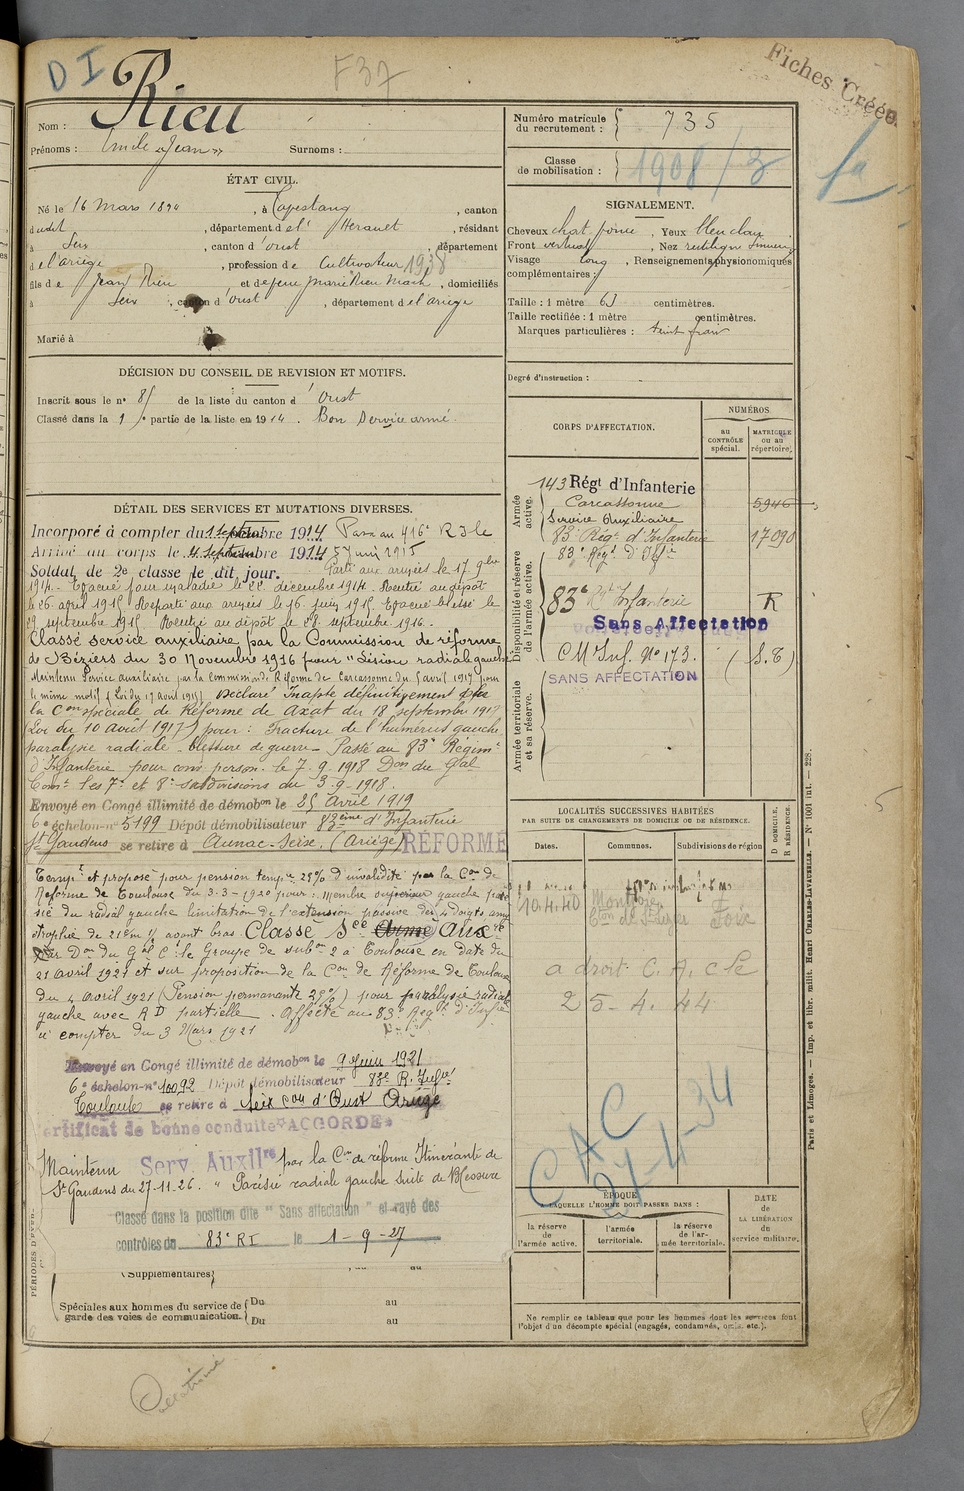 D I
F37
Fiches Créées
Rieu
Nom :
Prénoms : Emile "Jean"
Surnoms :
ÉTAT CIVIL.
Né le 16 Mars 1894, à Capestang, canton
dudit, département de l'Hérault, résidant
à Seix, canton d'Oust, département
de l'ariège, profession de Cultivateur 1938
fils de Jean Rieu et de feue Marie Rieu Mach, domiciliés
à Seix, canton d'Oust, département de l'ariège
Marié à
DÉCISION DU CONSEIL DE REVISION ET MOTIFS.
Inscrit sous le n° 85 de la liste du canton d'Oust
Classé dans la 1e partie de la liste en 1914. Bon service armé.
DÉTAIL DES SERVICES ET MUTATIONS DIVERSES.
Incorporé à compter du 1 septembre 1914 Passé au 416e R I le
Arrivé au corps le 4 septembre 1914 5 juin 1915
Soldat de 2e classe le dit jour. Parti aux armées le 17 9bre
1914. Evacué pour maladie le 22 décembre 1914. Rentré au dépôt
le 26 avril 1915 Reparti aux armées le 16 juin 1915. Evacué blessé le
29 septembre 1915. Rentré au dépôt le 28 septembre 1916.
Classé service auxiliaire par la Commission de réforme
de Béziers du 30 Novembre 1916 pour "Lésion radiale gauche"
Maintenu Service auxiliaire par la commission de Réforme de Carcassonne du 5 avril 1917 pour
le même motif (Loi du 17 août 1915) Déclaré Inapte définitivement par
la Con spéciale de Réforme de Axat du 18 septembre 1917
(Loi du 10 août 1917) pour : Fracture de l'humérus gauche
paralysie radiale. Blessure de guerre. Passé au 83e Régimt
d'Infanterie pour conv. person. le 7.9.1918 Don du Gal
Comt les 7e et 8e subdivisions du 3.9.1918.
Envoyé en Congé illimité de démobon le 25 Avril 1919
6e échelon-n° 5199 Dépôt démobilisateur 83ème d'Infanterie
St Gaudens se retire à Aunac-Seix, (Ariège) RÉFORMÉ
Tempre et proposé pour pension tempre 25% d'invalidité par la Con de
Réforme de Toulouse du 3-3-1920 pour : membre supérieur gauche
du radial gauche limitation de l'extension passive des 4 doigts
de 2cm ½ avant bras Classé Sce Armé Auxre
Par Don du Gal Ct le Groupe de subon 2 à Toulouse en date du
21 avril 1921 et sur proposition de la Con de Réforme de Toulouse
du 4 avril 1921 (Pension permanante 25%) pour paralysie radiale
gauche avec R D partielle. Affecté au 83e Regt d'Infie
à compter du 3 Mars 1921
Envoyé en Congé illimité de démobon le 9 Juin 1921
6e échelon-n° 10092 Dépôt démobilisateur 83e R. Infie
Toulouse se retire à Seix con d'Oust Ariège
Certificat de bonne conduite "ACCORDÉ"
Maintenu Serv. Auxilre par la Con de réforme Itinérante de
St Gaudens du 27-11-26. "Parésie radiale gauche suite de Blessure
Classé dans la position dite "Sans affectation" et rayé des
contrôles du 83e RI le 1-9-27
PÉRIODES D'EXER
Supplémentaires
au
Spéciales aux hommes du service de garde des voies de communication.
Du au
Du au
Numéro matricule du recrutement : 735
Classe de mobilisation : 1908/3
SIGNALEMENT.
Cheveux chat. foncé, Yeux bleu clair
Front vertical, Nez rectiligne
Visage long, Renseignements physionomiques
complémentaires :
Taille : 1 mètre 63 centimètres.
Taille rectifiée : 1 mètre centimètres.
Marques particulières : teint frais
Degré d'instruction :
CORPS D'AFFECTATION.
NUMÉROS.
au CONTRÔLE spécial.
MATRICULE ou au répertoire.
Armée active.
143 Régt d'Infanterie
Carcassonne 5946
Service Auxiliaire
83e Régt d'Infanterie 17090
83e Régt d'Infie
Disponibilité et réserve de l'armée active.
83e Rt Infanterie R
Sans Affectation
C M Inf. N° 173. (S.T)
SANS AFFECTATION
Armée territoriale et sa réserve.
LOCALITÉS SUCCESSIVES HABITÉES
PAR SUITE DE CHANGEMENTS DE DOMICILE OU DE RÉSIDENCE.
Dates.
Communes.
Subdivisions de région
D DOMICILE.
R RÉSIDENCE.
10.4.40
Foix
a droit C. A. c le
25-4.44
C A C
27-4-34
ÉPOQUE
À LAQUELLE L'HOMME DOIT PASSER DANS :
la réserve de l'armée active.
l'armée territoriale.
la réserve de l'armée territoriale.
DATE de LA LIBÉRATION du service militaire.
Ne remplir ce tableau que pour les hommes dont les services font
l'objet d'un décompte spécial (engagés, condamnés, omis, etc.).
Paris et Limoges. — Imp. et libr. milit. Henri CHARLES-LAVAUZELLE. — N° 1001 int. — 228.
5
Collationné